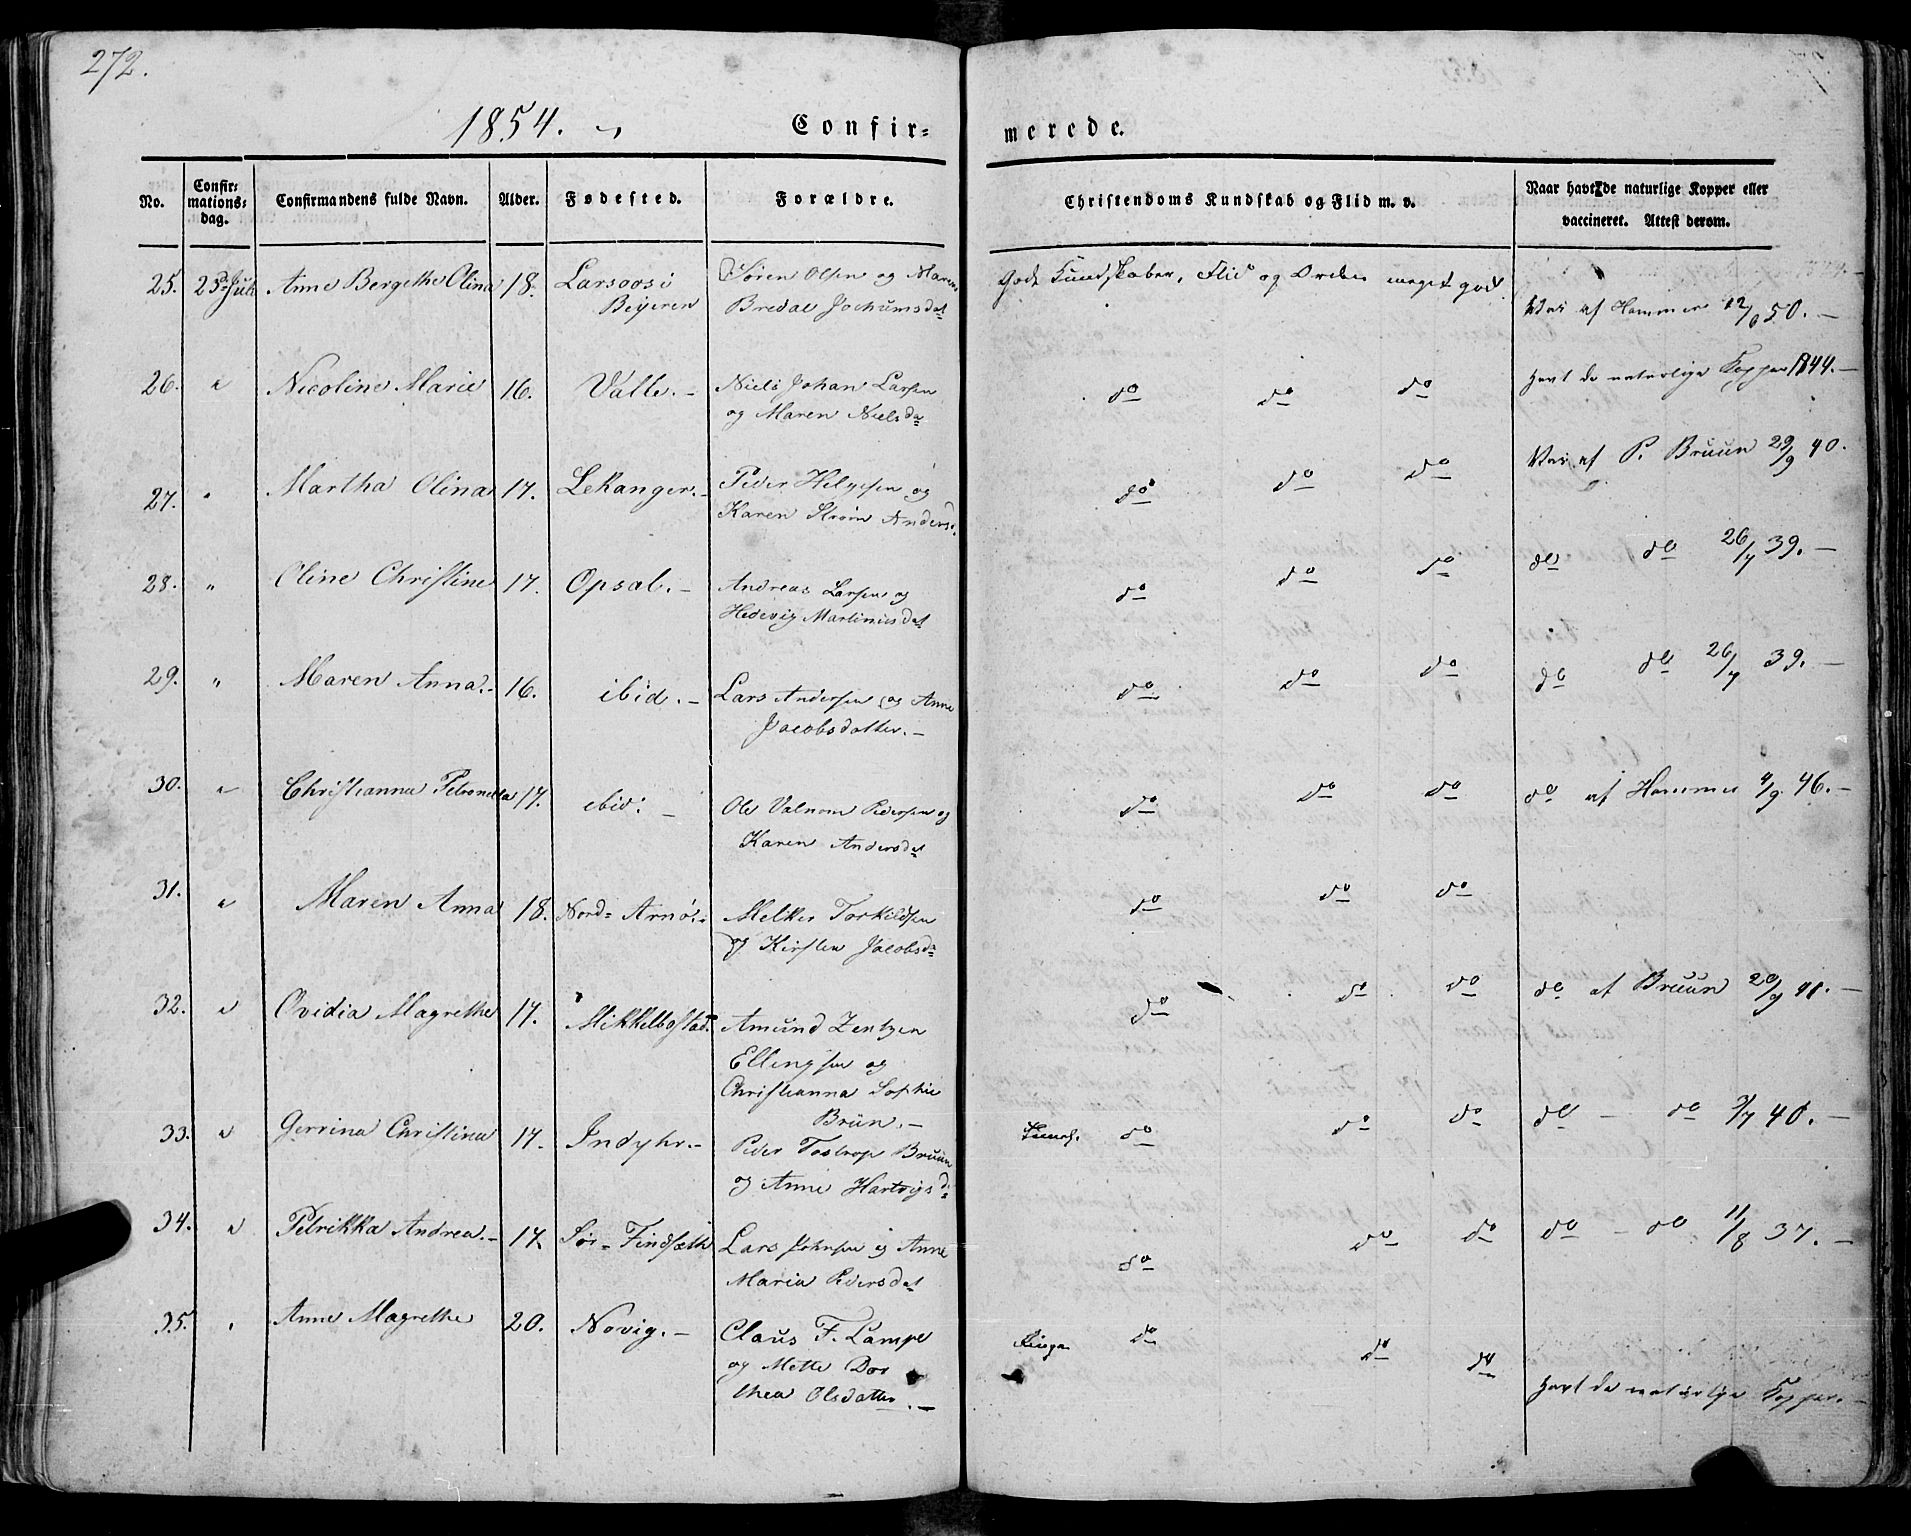 272.
1854.
Confir=
merede.
No. Confir: mations: dag. Confirmandens fulde Navn. Alder. Fødested. Forældre. Christendoms Kundskab og Flid m. v. Naar havt de naturlige Kopper eller vaccineret. Attest derom.
25. 23de Juli Anne Bergethe Olina 18. Larsoos i Søren Olsen og Maren Gode Kundskaber, Flid og Orden meget god.
Beyeren Bredal Jochumsdat Vac af Hammer 12/6 50. —
26. " Nicoline Marie 16. Valle. – Niels Johan Larsen do do do havt de naturlige Kopper 1844. –
og Maren Nielsda
27. " Martha Olina 17. Lekanger. – Peder Helgesen og do do do Vac af P. Bruun 29/9 40.
Karen Strøm Andersd.
28. " Oline Christine 17. Opsal. – Andreas Larsen og do do do do do 26/7 39. –
Hedevig Martinusdat
29. " Maren Anna. – 16. ibid. – Lars Andersen og Anne do do do do do 26/7 39. –
Jacobsdatter. –
30. " Christianna Petronella 17. ibid: – Ole Valnom Pedersen og do do do do af Hammer 4/9 46. –
Karen Andersdat
31. " Maren Anna 18. Nord= Arnø. – Melker Torkildsen do do do
og Kirsten Jacobsd
32. " Ovidia Magrethe 17. Mikkelbostad Amund Zentzen do do do do af Bruun 20/9 41. –
Ellingsen og
Christianna Sophie
Brün. –
33. " Gerrina Christina 17. Indyhr. – Peder Tostrop Bruun do do do do – do 3/7 40. –
og Anne Hartvigsd
34. " Petrikka Andrea. – 17. Sør= Findsæth Lars Johnsen og Anne do do do do – do 11/8 37. –
Maria Pedersdat
35. " Anne Magrethe 20. Novig. – Claus F. Lampe do do do
og Mette Dor havt de naturlige Kopper. –
thea Olsdatter. –